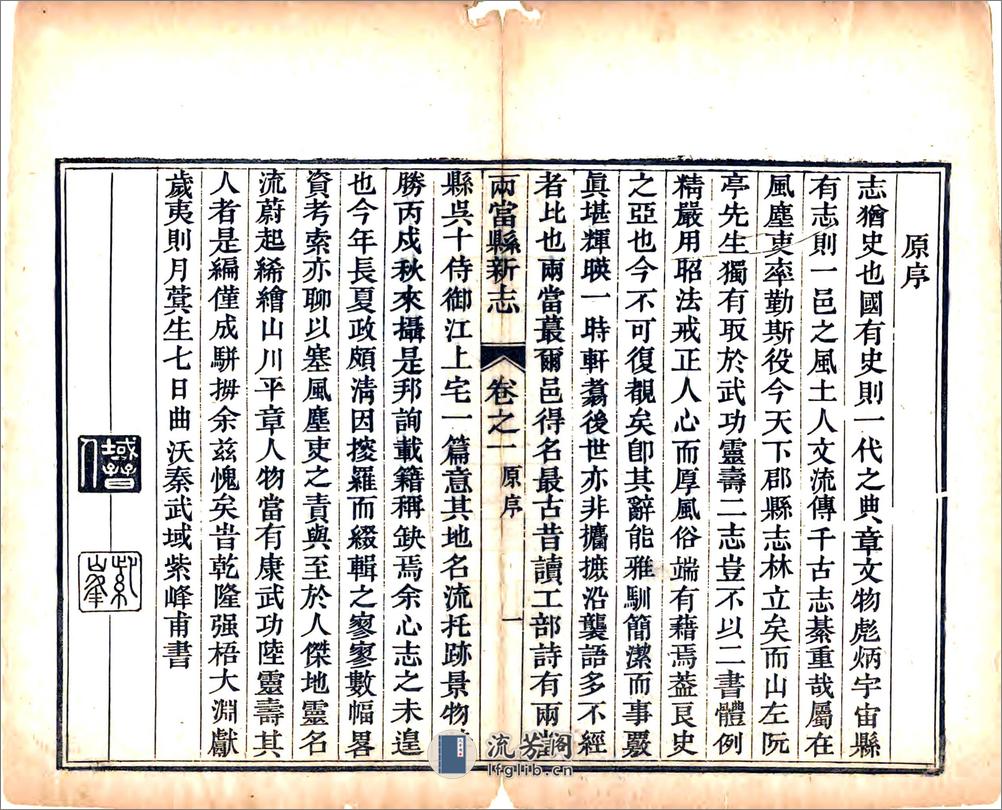 原序
志猶史也國有史則一代之典章文物彪炳宇宙縣
有志則一邑之風土人文流傳千古志綦重哉屬在
風塵吏率勤斯役今天下郡縣志林立矣而山左阮
亭先生獨有取於武功靈壽二志豈不以二書體例
精嚴用昭法戒正人心而厚風俗端有藉焉葢良史
之亞也今不可復覩矣卽其辭能雅馴簡潔而事覈
眞堪輝暎一時軒翥後世亦非攟摭沿襲語多不經
者比也兩當蕞爾邑得名最古昔讀工部詩有兩當
兩當縣新志 卷之一 原序 一
縣吳十侍御江上宅一篇意其地名流托跡景物
勝丙戍秋來攝是邦詢載籍稱缺焉余心志之未遑
也今年長夏政頗清因搜羅而綴輯之寥寥數幅畧
資考索亦聊以塞風塵吏之責與至於人傑地靈名
流蔚起絺繪山川平章人物當有康武功陸靈壽其
人者是編僅成騈拇余兹愧矣旹乾隆强梧大淵獻
歲夷則月蓂生七日曲沃秦武域紫峰甫書
武域晉人
紫峯
流芳阁
lfglib.cn